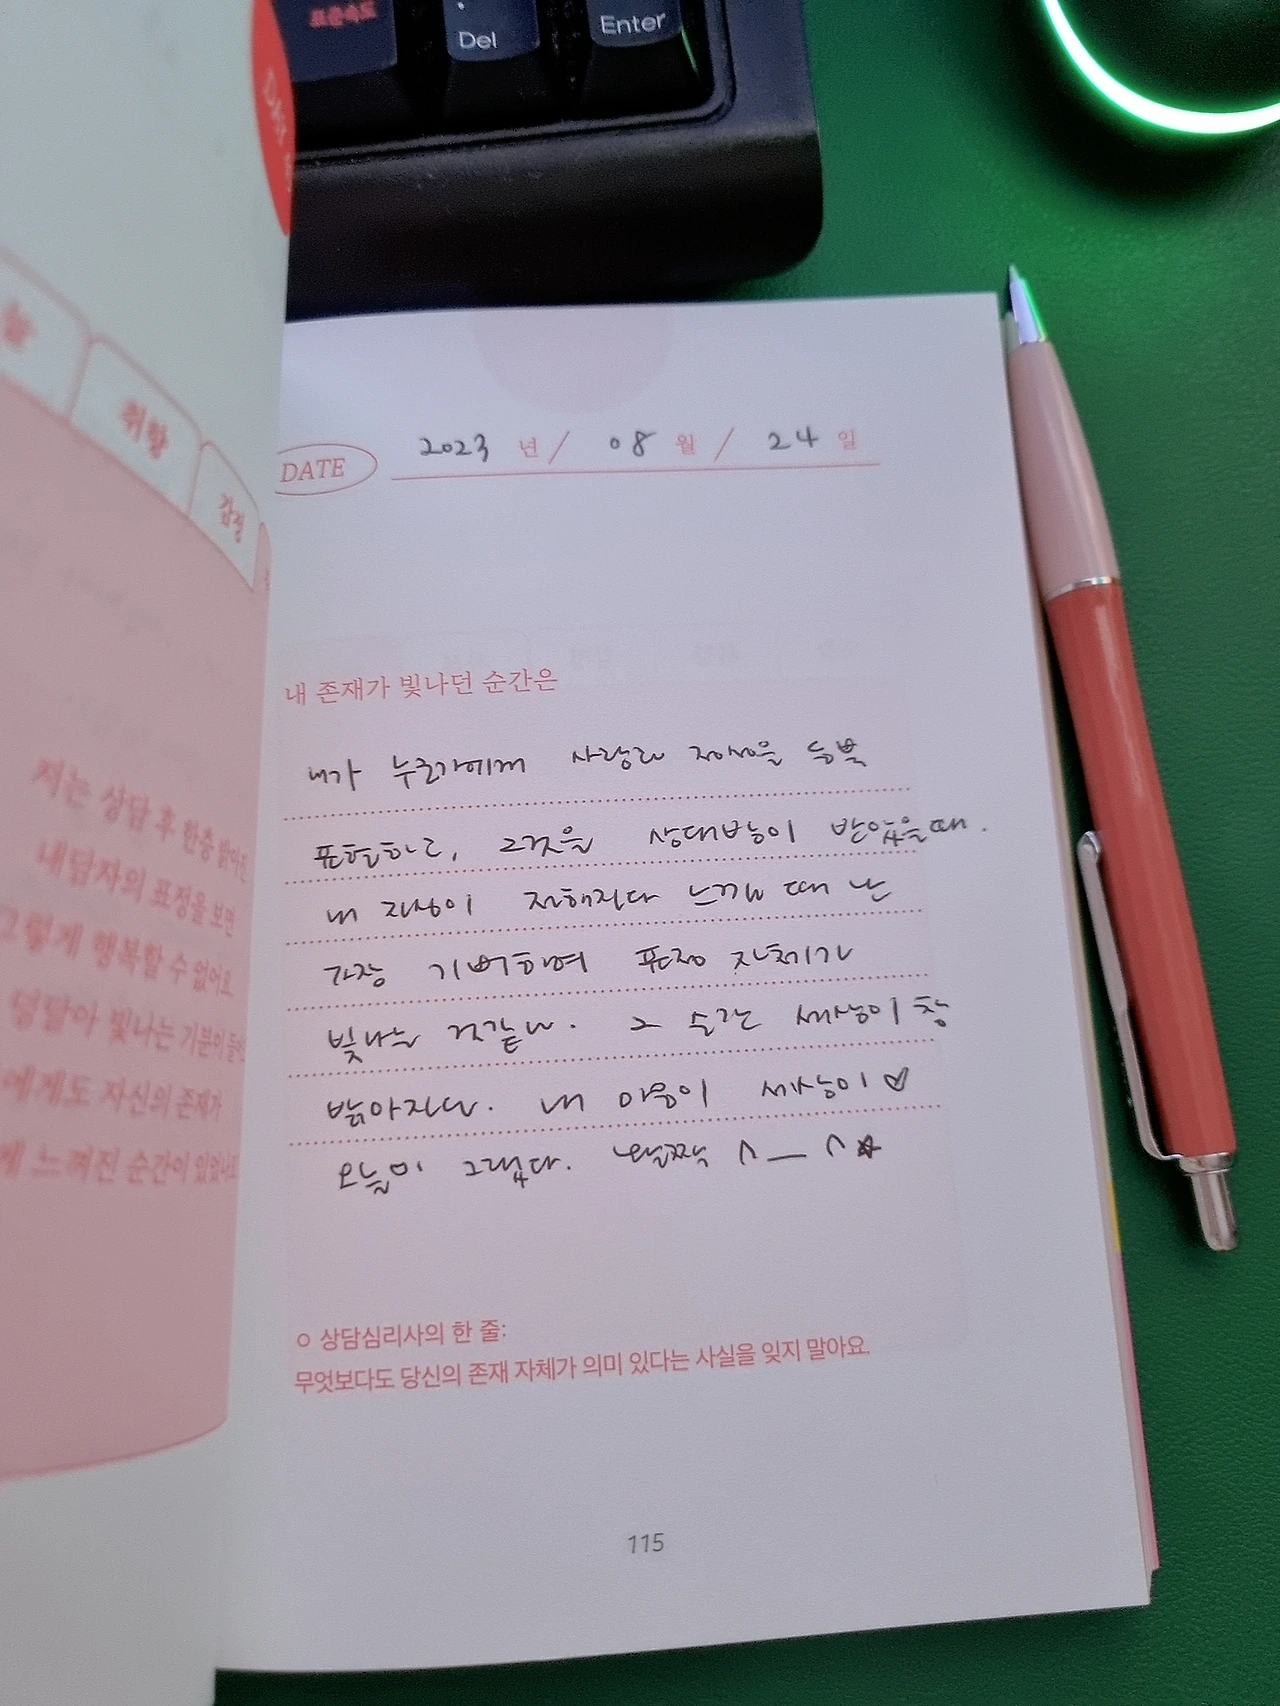 표준속도
Del
Enter
DAY
늘
취향
감정
저는 상담 후 한층 밝아진
내담자의 표정을 보면
그렇게 행복할 수 없어요
덩달아 빛나는 기분이 들어
에게도 자신의 존재가
게 느껴진 순간이 있었나요
DATE 2023 년 / 08 월 / 24 일
내 존재가 빛나던 순간은
내가 누군가에게 사랑과 정성을 듬뿍
표현하고, 그것을 상대방이 받았을때.
내 진심이 전해진다 느껴질 때 난
가장 기뻐하며 표정 자체가
빛나는 것같다. 그 순간 세상이 참
밝아진다. 내 마음이 세상이♡
오늘이 그랬다. 활짝 ^_^☆
○ 상담심리사의 한 줄:
무엇보다도 당신의 존재 자체가 의미 있다는 사실을 잊지 말아요.
115